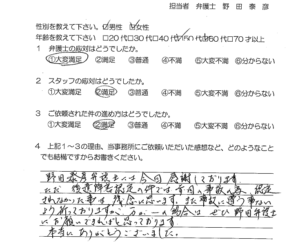 担当者 弁護士 野田泰彦
性別を教えて下さい。 □男性 ☑女性
年齢を教えて下さい □20代□30代□40代☑50代□60代□70才以上
1 弁護士の応対はどうでしたか。
①大変満足 ②満足 ③普通 ④不満 ⑤大変不満 ⑥分からない
2 スタッフの応対はどうでしたか。
①大変満足 ②満足 ③普通 ④不満 ⑤大変不満 ⑥分からない
3 ご依頼された件の進め方はどうでしたか。
①大変満足 ②満足 ③普通 ④不満 ⑤大変不満 ⑥分からない
4 上記1~3の理由、当事務所にご依頼いただいた感想など、どのようなこと
でも結構ですからお書きください。
野田泰彦弁護士には今回感謝しております
ただ後遺障害認定の件では今回の事故の為、認定
されなかった事は、残念に思います。また事故に遭う事ない
よう祈っておりますが、万が一の場合は ぜひ野田弁護士
にお願いできればと思っております
本当にありがとうございました。